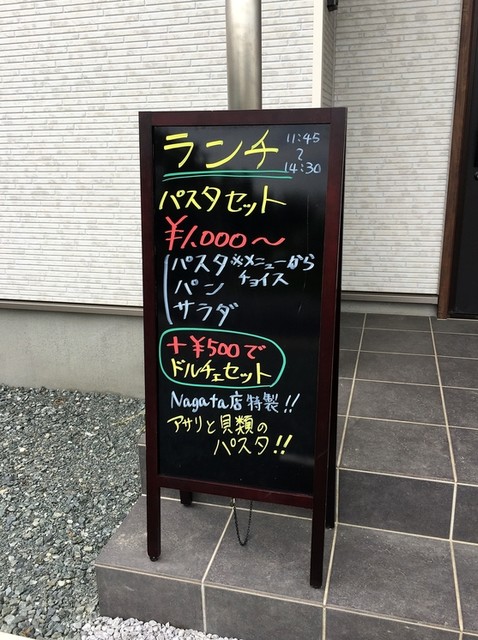 ランチ 11:45
〜
14:30
パスタセット
¥1,000〜
パスタ ※メニューから
チョイス
パン
サラダ
+¥500で
ドルチェセット
Nagata店特製!!
アサリと貝類の
パスタ!!